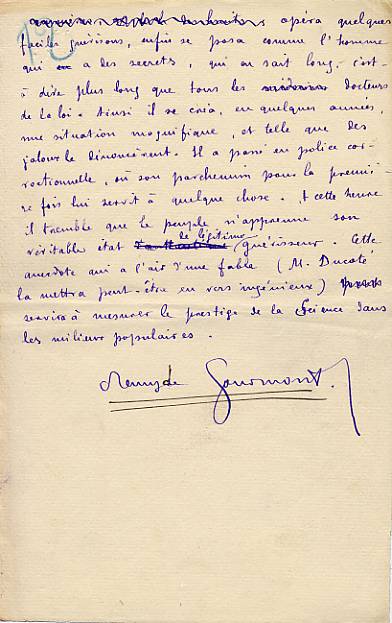 opéra quelques
faciles guérisons, enfin se posa comme l'homme
qui a des secrets, qui en sait long, c'est-
à dire plus long que tous les docteurs
de la loi. Ainsi il se créa, en quelques années,
une situation magnifique, et telle que des
jaloux le dénoncèrent. Il a passé en police cor-
rectionnelle, où son parchemin pour la premiè-
re fois lui servit à quelque chose. A cette heure
il tremble que le peuple n'apprenne son
véritable état de légitime guérisseur. Cette
anecdote qui a l'air d'une fable (M. Ducoté
la mettra peut-être en vers ingénieux)
servira à mesurer le prestige de la Science dans
les milieux populaires.
Remy de Gourmont.